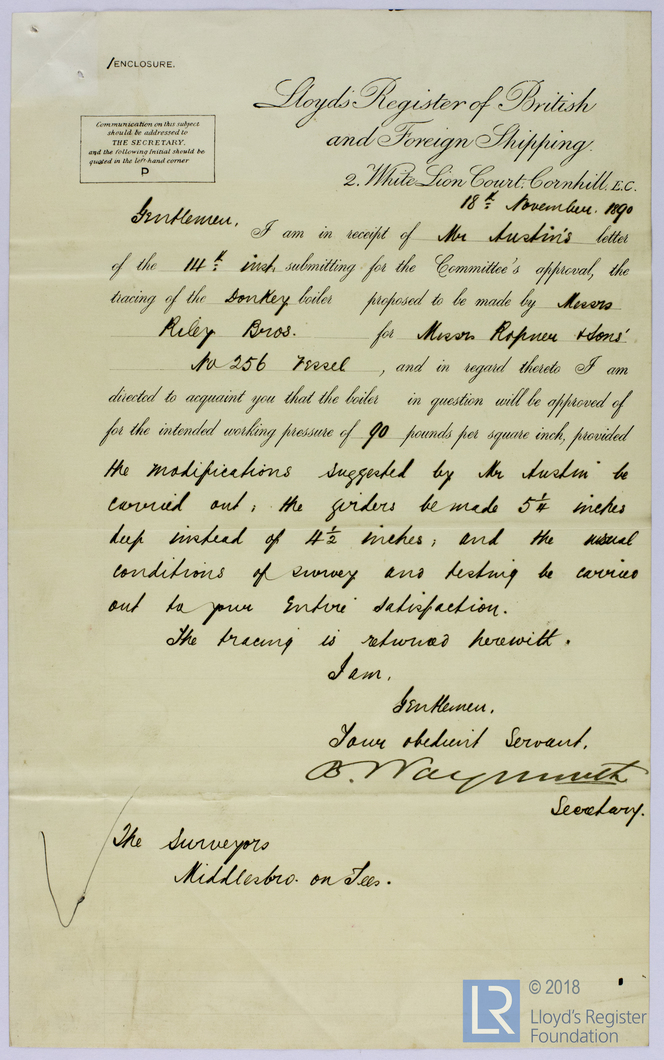 /ENCLOSURE.
Communication on this subject
should be addressed to
THE SECRETARY.
and the following Initial should be
quoted in the left-hand corner
P
Lloyd's Register of British
and Foreign Shipping.
2, White Lion Court, Cornhill, E.C.
18th November. 1890
Gentlemen,
I am in receipt of Mr Austin's letter
of the 14th inst, submitting for the Committee's approval, the
tracing of the Donkey boiler proposed to be made by Messrs
Riley Bros. for Messrs Ropner & Sons'
No 256 Vessel, and in regard thereto I am
directed to acquaint you that the boiler in question will be approved of
for the intended working pressure of 90 pounds per square inch, provided
the modifications suggested by Mr Austin be
carried out; the girders be made 5 1/4 inches
deep instead of 4 1/2 inches; and the usual
conditions of survey and testing be carried
out to your Entire satisfaction.
The tracing is returned herewith.
I am,
Gentlemen,
Your obedient Servant,
B. Waymouth
Secretary.
The Surveyors
Middlesbro. on Tees.
LR
© 2018
Lloyd's Register
Foundation